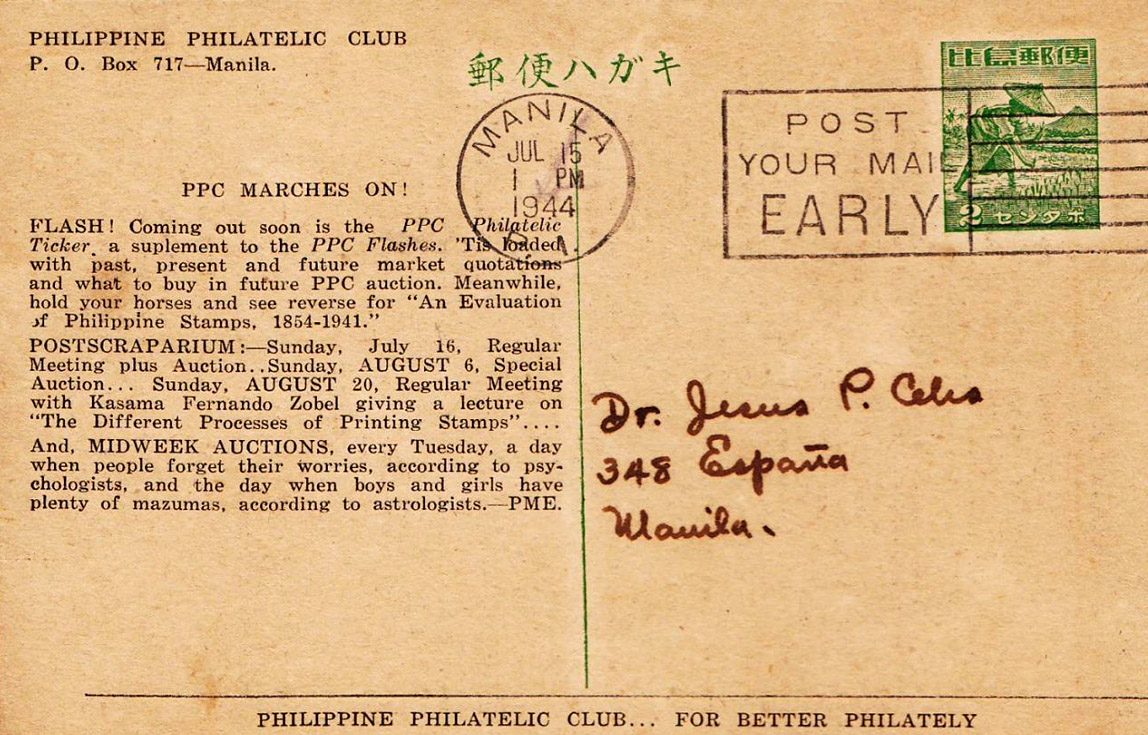 PHILIPPINE PHILATELIC CLUB
P. O. Box 717—Manila.
郵便ハガキ
比島郵便
2 センタボ
MANILA
JUL 15
1 PM
1944
P.I.
POST
YOUR MAIL
EARLY
PPC MARCHES ON!
FLASH! Coming out soon is the PPC Philatelic
Ticker, a suplement to the PPC Flashes. 'Tis loaded
with past, present and future market quotations
and what to buy in future PPC auction. Meanwhile,
hold your horses and see reverse for “An Evaluation
of Philippine Stamps, 1854-1941.”
POSTSCRAPARIUM:—Sunday, July 16, Regular
Meeting plus Auction..Sunday, AUGUST 6, Special
Auction... Sunday, AUGUST 20, Regular Meeting
with Kasama Fernando Zobel giving a lecture on
“The Different Processes of Printing Stamps”....
And, MIDWEEK AUCTIONS, every Tuesday, a day
when people forget their worries, according to psy-
chologists, and the day when boys and girls have
plenty of mazumas, according to astrologists.—PME.
Dr. Jesus P. Celis
348 España
Manila.
PHILIPPINE PHILATELIC CLUB... FOR BETTER PHILATELY